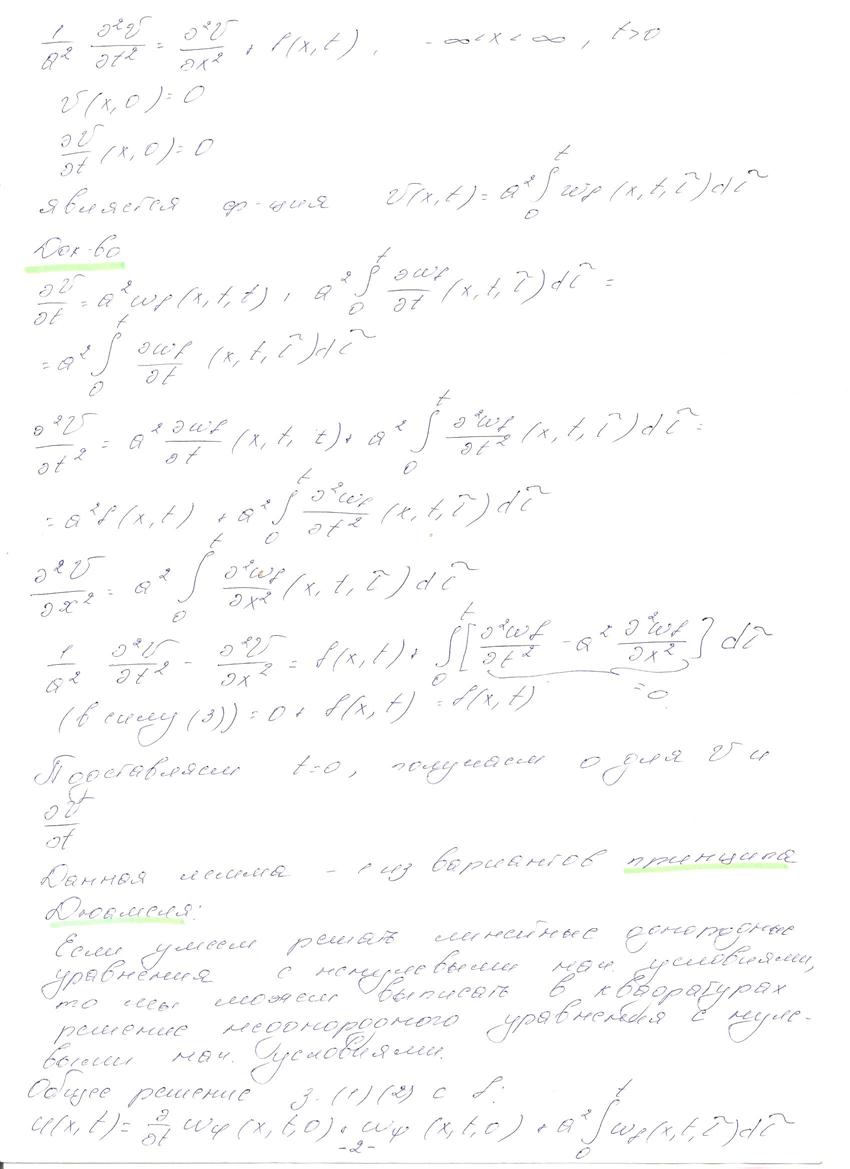 1/a² ∂²v/∂t² = ∂²v/∂x² + f(x,t), -∞<x<∞, t>0
v(x,0)=0
∂v/∂t (x,0)=0
является ф-ция v(x,t)= a² ∫₀ᵗ w_f (x,t,τ)dτ
Док-во
∂v/∂t = a² w_f (x,t,t) + a² ∫₀ᵗ ∂w_f/∂t (x,t,τ)dτ =
= a² ∫₀ᵗ ∂w_f/∂t (x,t,τ)dτ
∂²v/∂t² = a² ∂w_f/∂t (x,t,t) + a² ∫₀ᵗ ∂²w_f/∂t² (x,t,τ)dτ =
= a² f(x,t) + a² ∫₀ᵗ ∂²w_f/∂t² (x,t,τ)dτ
∂²v/∂x² = a² ∫₀ᵗ ∂²w_f/∂x² (x,t,τ)dτ
1/a² ∂²v/∂t² - ∂²v/∂x² = f(x,t) + ∫₀ᵗ [∂²w_f/∂t² - a² ∂²w_f/∂x²] dτ
=0
(в силу (3)) = 0 + f(x,t) = f(x,t)
Подставляем t=0, получаем 0 для v и
∂v/∂t
Данная лемма - 1 из вариантов принципа
Дюамеля:
Если умеем решать линейные однородные
уравнения с ненулевыми нач. условиями,
то мы можем выписать в квадратурах
решение неоднородного уравнения с нуле-
выми нач. условиями.
Общее решение з. (1)(2) с f:
u(x,t)= ∂/∂t w_φ (x,t,0) + w_ψ (x,t,0) + a² ∫₀ᵗ w_f(x,t,τ)dτ
-2-